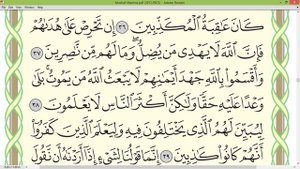 (SECURED) - Adobe Reader
كَانَ عَٰقِبَةُ ٱلْمُكَذِّبِينَ ٣٦ إِن تَحْرِصْ عَلَىٰ هُدَىٰهُمْ
فَإِنَّ ٱللَّهَ لَا يَهْدِى مَن يُضِلُّ وَمَا لَهُم مِّن نَّٰصِرِينَ ٣٧
وَأَقْسَمُوا۟ بِٱللَّهِ جَهْدَ أَيْمَٰنِهِمْ لَا يَبْعَثُ ٱللَّهُ مَن يَمُوتُ بَلَىٰ
وَعْدًا عَلَيْهِ حَقًّا وَلَٰكِنَّ أَكْثَرَ ٱلنَّاسِ لَا يَعْلَمُونَ ٣٨
لِيُبَيِّنَ لَهُمُ ٱلَّذِى يَخْتَلِفُونَ فِيهِ وَلِيَعْلَمَ ٱلَّذِينَ كَفَرُوٓا۟
أَنَّهُمْ كَانُوا۟ كَٰذِبِينَ ٣٩ إِنَّمَا قَوْلُنَا لِشَىْءٍ إِذَآ أَرَدْنَٰهُ أَن نَّقُولَ